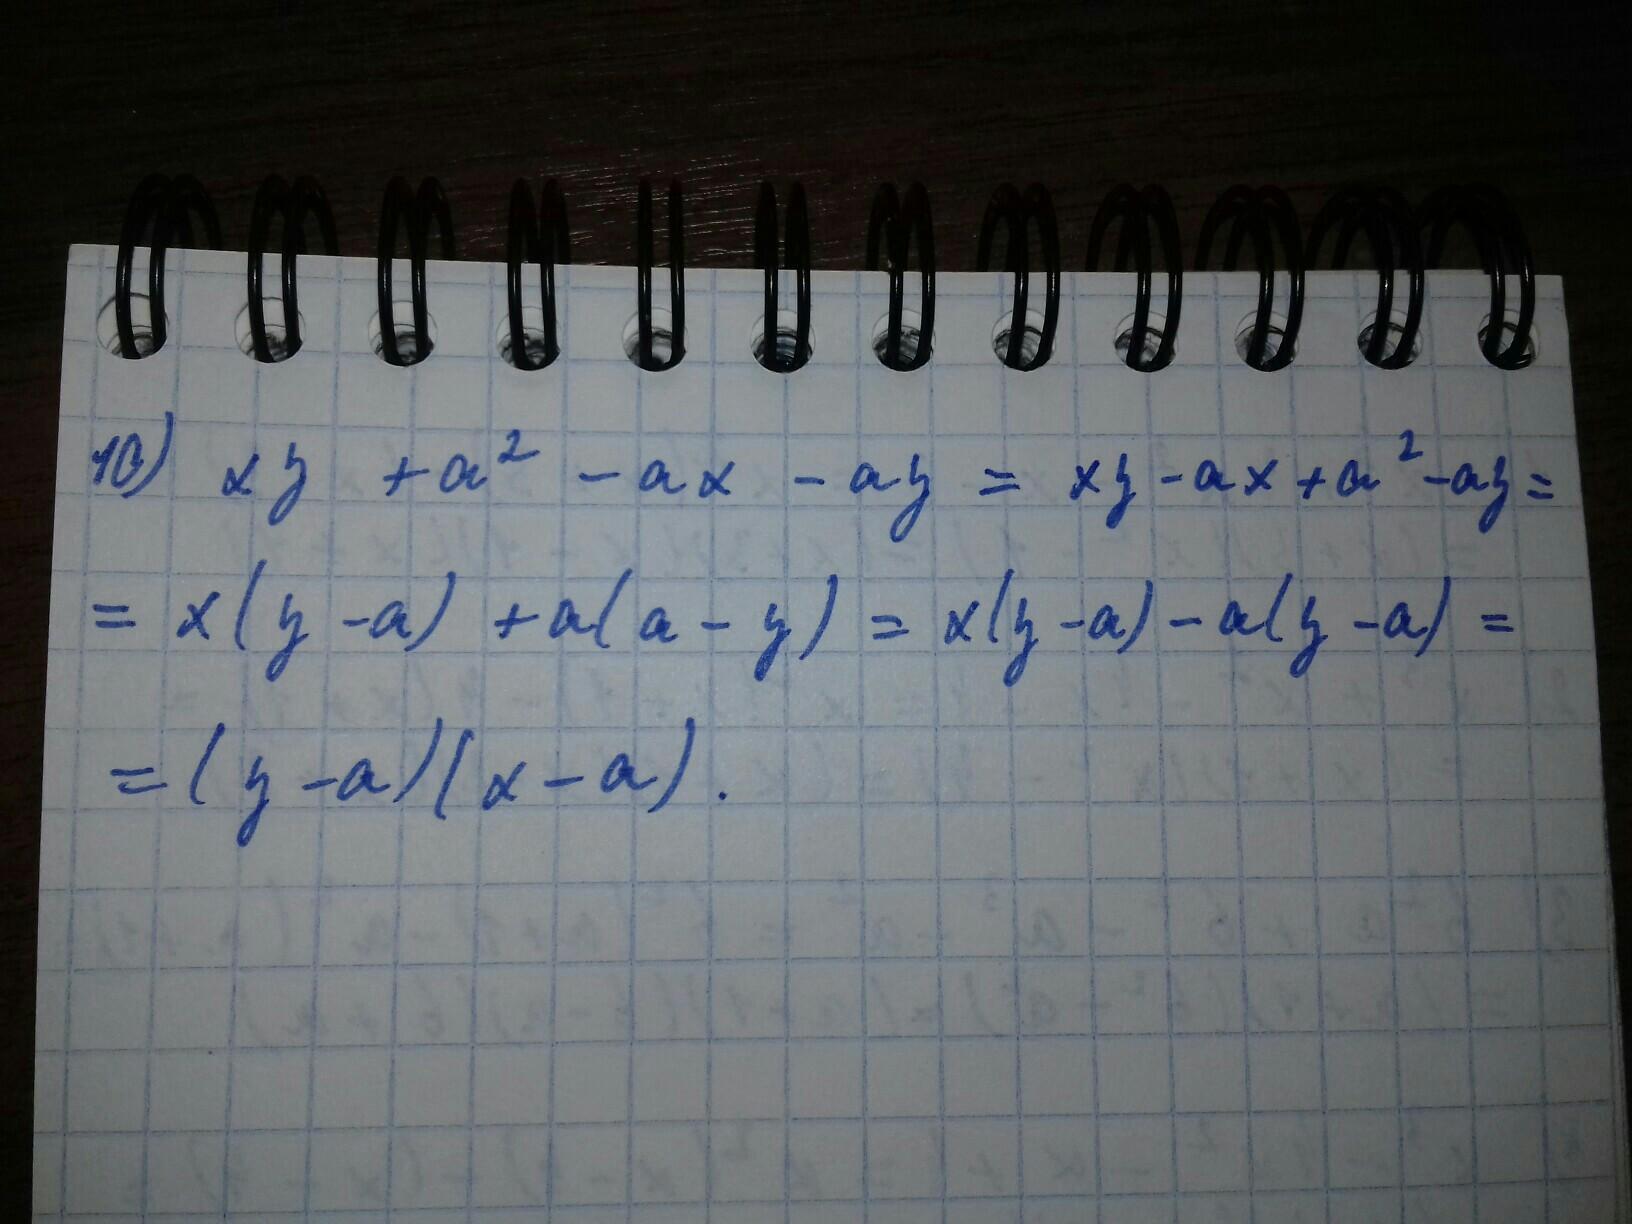 10) xy + a² - ax - ay = xy - ax + a² - ay =
= x(y - a) + a(a - y) = x(y - a) - a(y - a) =
= (y - a)(x - a).